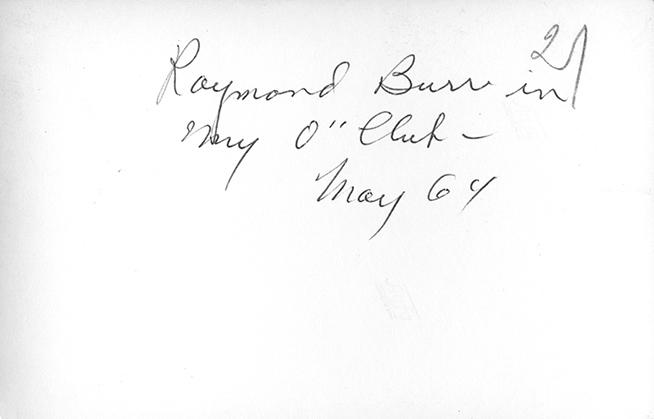 21
Raymond Burr in
my O" Club –
May 64